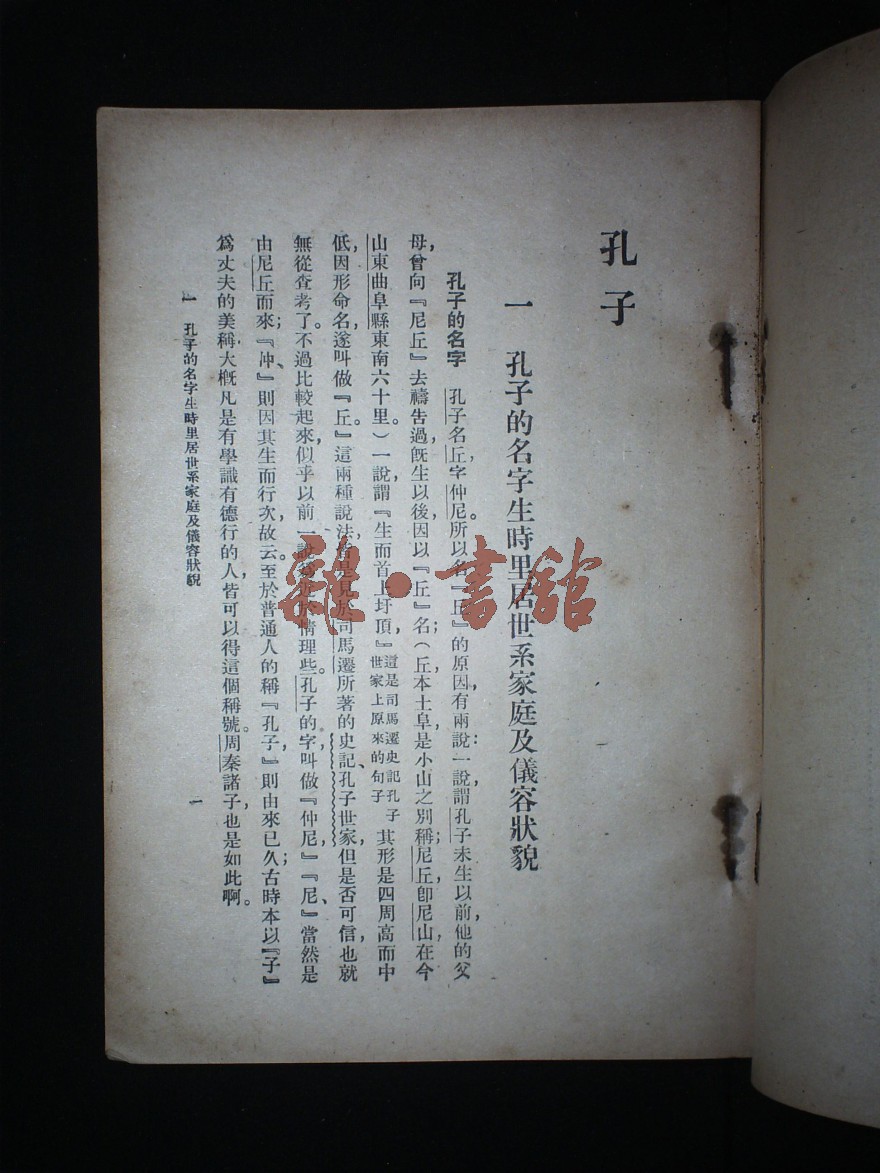 孔子
一　孔子的名字生時里居世系家庭及儀容狀貌
孔子的名字　孔子名丘，字仲尼。所以名『丘』的原因，有兩說：一說，謂孔子未生以前，他的父
母，曾向『尼丘』去禱告過，旣生以後，因以『丘』名；（丘本土阜，是小山之別稱；尼丘卽尼山，在今
山東曲阜縣東南六十里。）一說，謂『生而首上圩頂，』這是司馬遷史記孔子世家上原來的句子其形是四周高而中
低，因形命名，遂叫做『丘。』這兩種說法，皆是見於司馬遷所著的史記、孔子世家，但是否可信，也就
無從查考了。不過比較起來，似乎以前一說爲近於情理些。孔子的字，叫做『仲尼』『尼、』當然是
由尼丘而來；『仲、』則因其生而行次故云。至於普通人的稱『孔子，』則由來已久；古時本以『子』
爲丈夫的美稱，大槪凡是有學識有德行的人，皆可以得這個稱號。周秦諸子，也是如此啊。
一　孔子的名字生時里居世系家庭及儀容狀貌
一
雜·書館